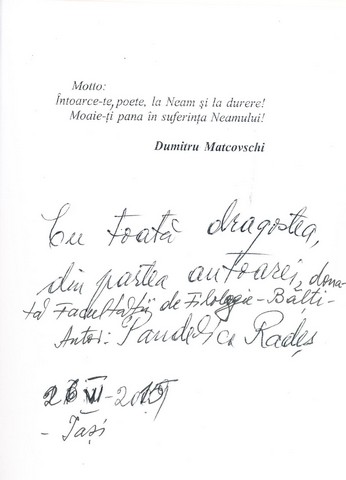 Motto:
Întoarce-te, poete, la Neam și la durere!
Moaie-ți pana în suferința Neamului!
Dumitru Matcovschi
Cu toată dragostea,
din partea autoarei, dona-
tă Facultății de Filologie-Bălți-
Autor: Pandelica Radeș
VI-2015
- Iași